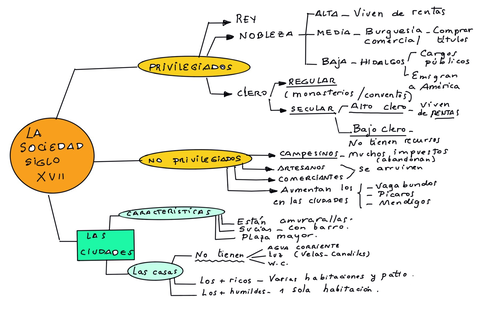 LA
SOCIEDAD
SIGLO
XVII
PRIVILEGIADOS
REY
NOBLEZA
ALTA - Viven de rentas
MEDIA - Burguesia - Comprar
comercial títulos
BAJA - HIDALGOS
Cargos
públicos
Emigran
a América
CLERO
REGULAR
(monasterios/conventos)
SECULAR
Alto clero - Viven
de RENTAS
Bajo Clero -
No tienen recursos
NO PRIVILEGIADOS
CAMPESINOS - Muchos impuestos
(abandonan)
ARTESANOS
COMERCIANTES
Se arruinen
Aumentan los
en las ciudades
- Vagabundos
- Pícaros
- Mendigos
LAS
CIUDADES
CARACTERÍSTICAS
Están amurarallas.
Sucias - con barro.
Plaza mayor.
Las casas
No tienen
AGUA CORRIENTE
LUZ (Velas-Candiles)
W.C.
Los + ricos - Varias habitaciones y patio.
Los + humildes - 1 sola habitación.